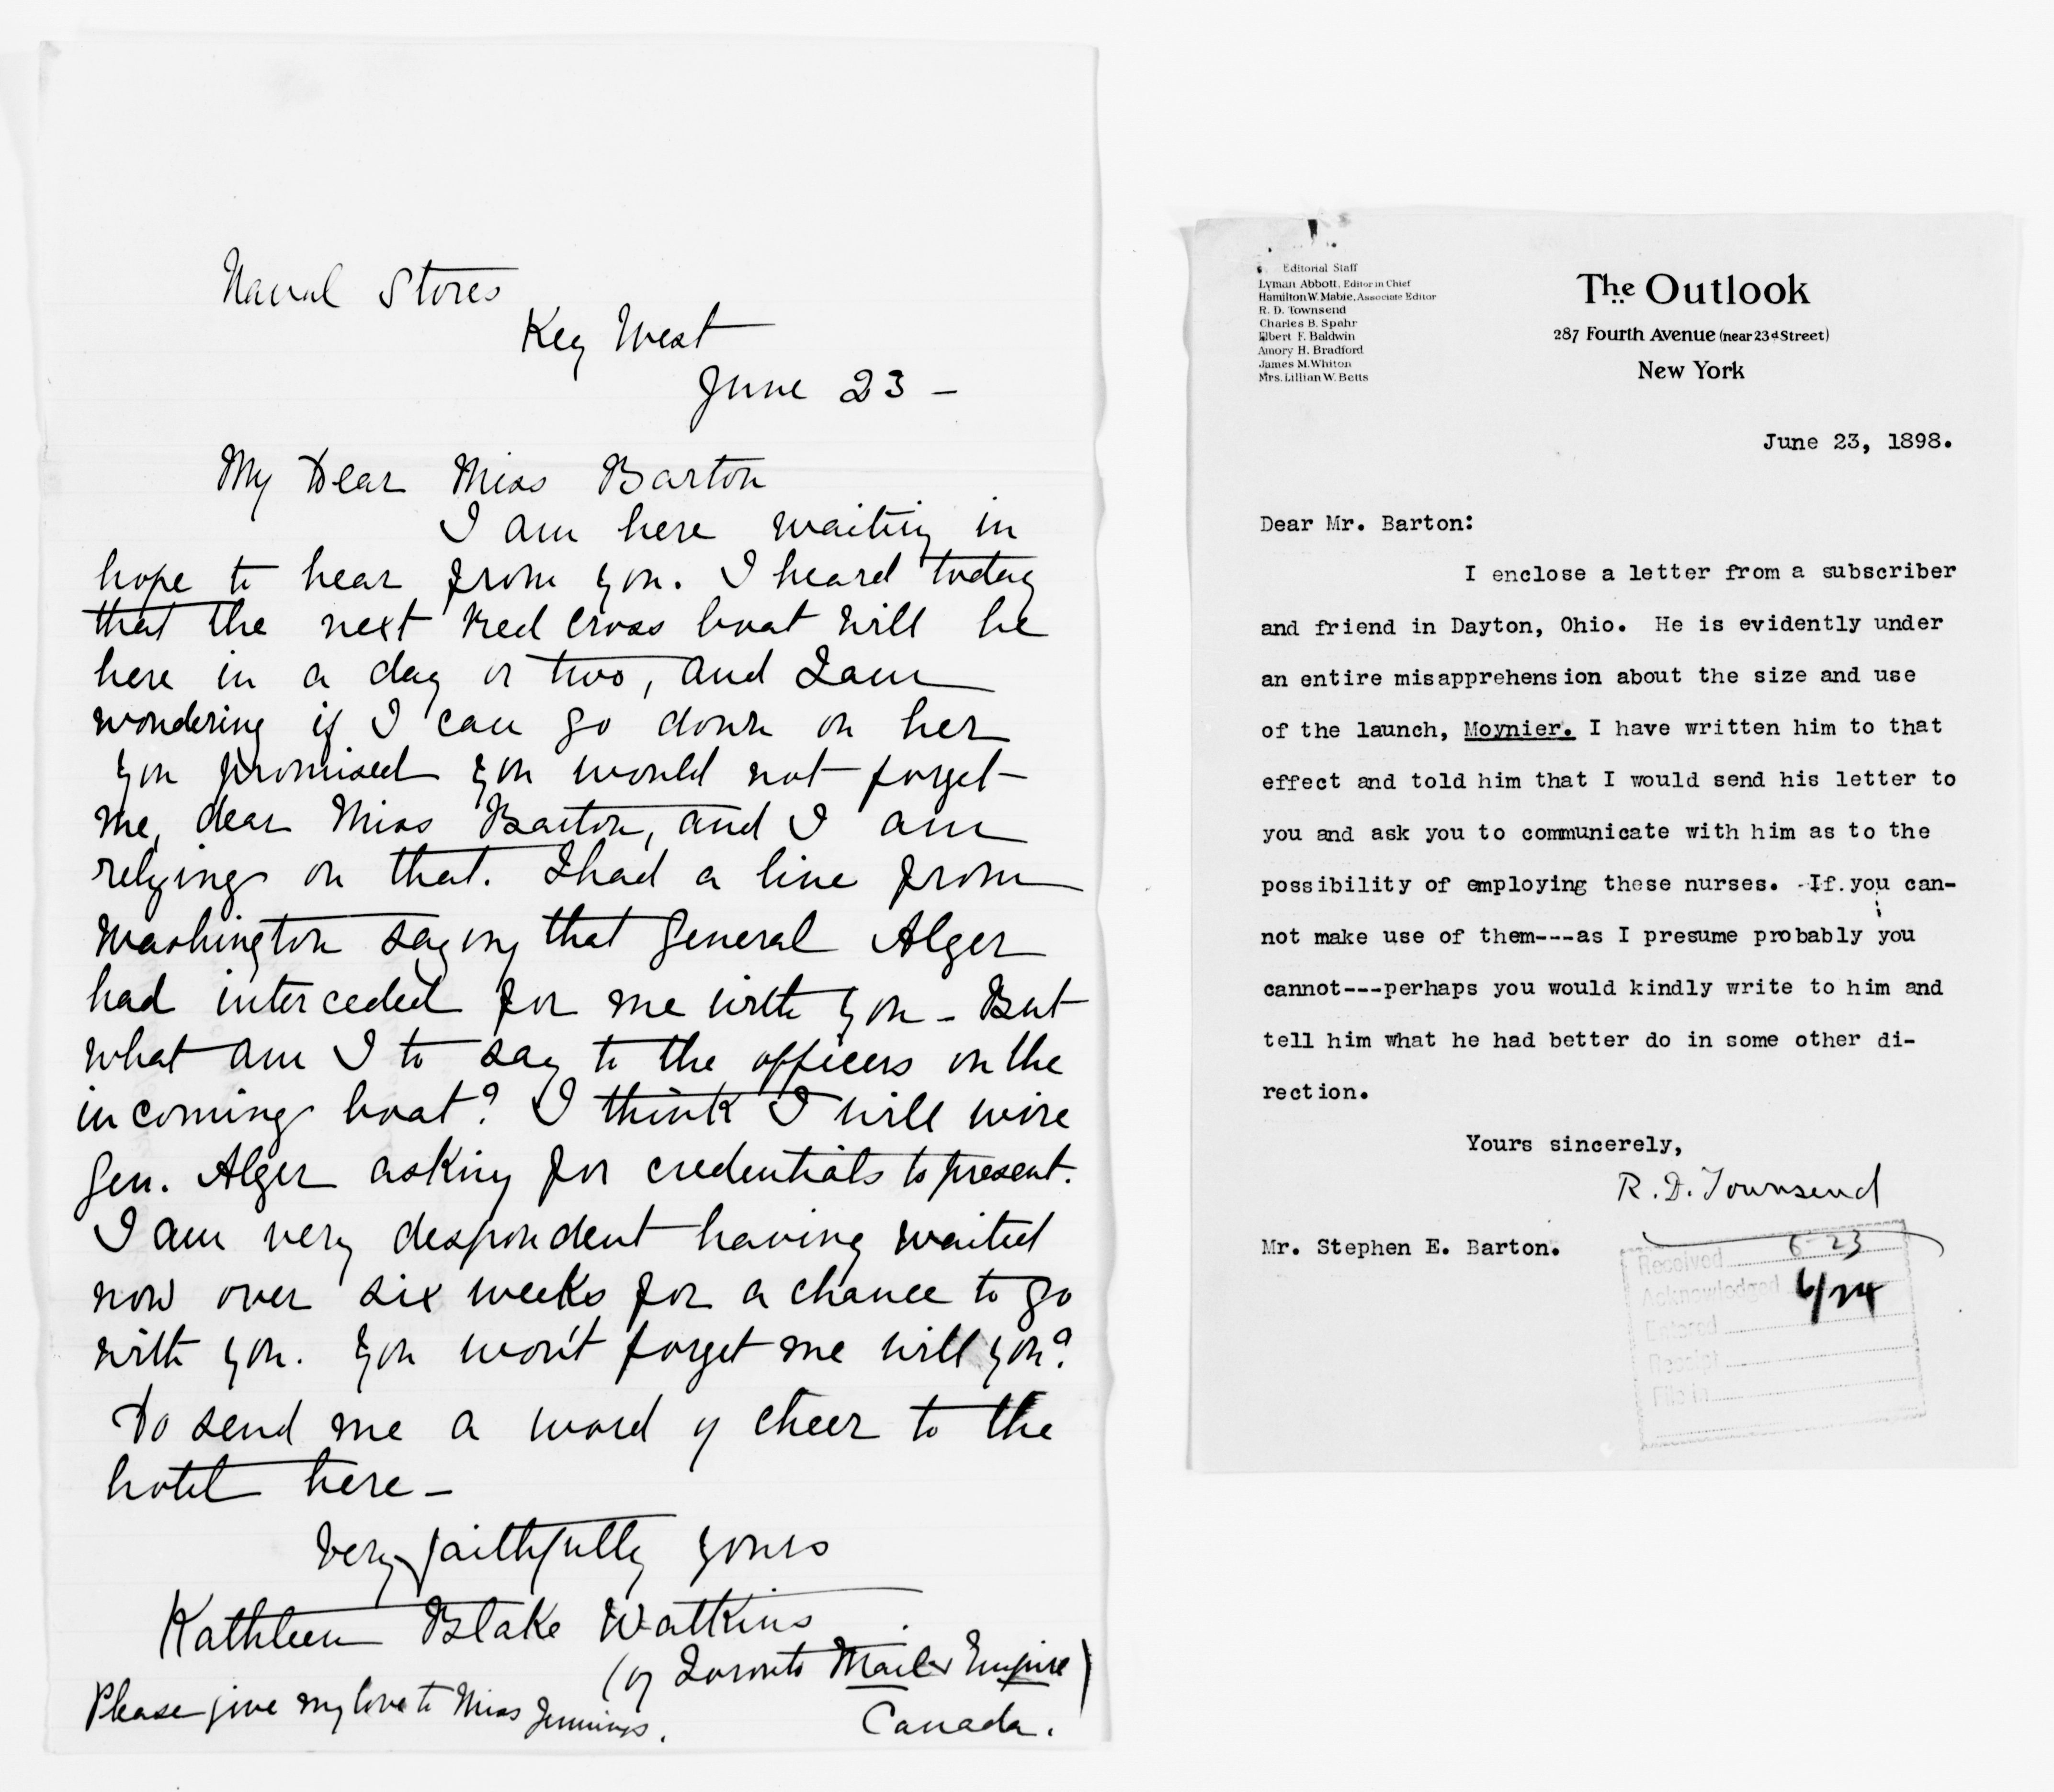 Naval Stores
Key West
June 23 –
My Dear Miss Barton
I am here waiting in
hope to hear from you. I heard today
that the next Red Cross boat will be
here in a day or two, and I am
wondering if I can go down on her
you promised you would not forget
me, dear Miss Barton, and I am
relying on that. I had a line from
Washington saying that General Alger
had interceded for me with you – But
what am I to say to the officers on the
incoming boat? I think I will wire
Gen. Alger asking for credentials to present.
I am very despondent having waited
now over six weeks for a chance to go
with you. You won't forget me will you?
Do send me a word of cheer to the
hotel here –
Very faithfully yours
Kathleen Blake Watkins
(of Toronto Mail & Empire)
Canada.
Please give my love to Miss Jennings.
Editorial Staff
Lyman Abbott, Editor in Chief
Hamilton W. Mabie, Associate Editor
R. D. Townsend
Charles B. Spahr
Elbert F. Baldwin
Amory H. Bradford
James M. Whiton
Mrs. Lillian W. Betts
The Outlook
287 Fourth Avenue (near 23d Street)
New York
June 23, 1898.
Dear Mr. Barton:
I enclose a letter from a subscriber
and friend in Dayton, Ohio. He is evidently under
an entire misapprehension about the size and use
of the launch, Moynier. I have written him to that
effect and told him that I would send his letter to
you and ask you to communicate with him as to the
possibility of employing these nurses. If you can-
not make use of them---as I presume probably you
cannot---perhaps you would kindly write to him and
tell him what he had better do in some other di-
rection.
Yours sincerely,
R. D. Townsend
Mr. Stephen E. Barton.
Received 6-23
Acknowledged 6/24
Entered
Receipt
File in